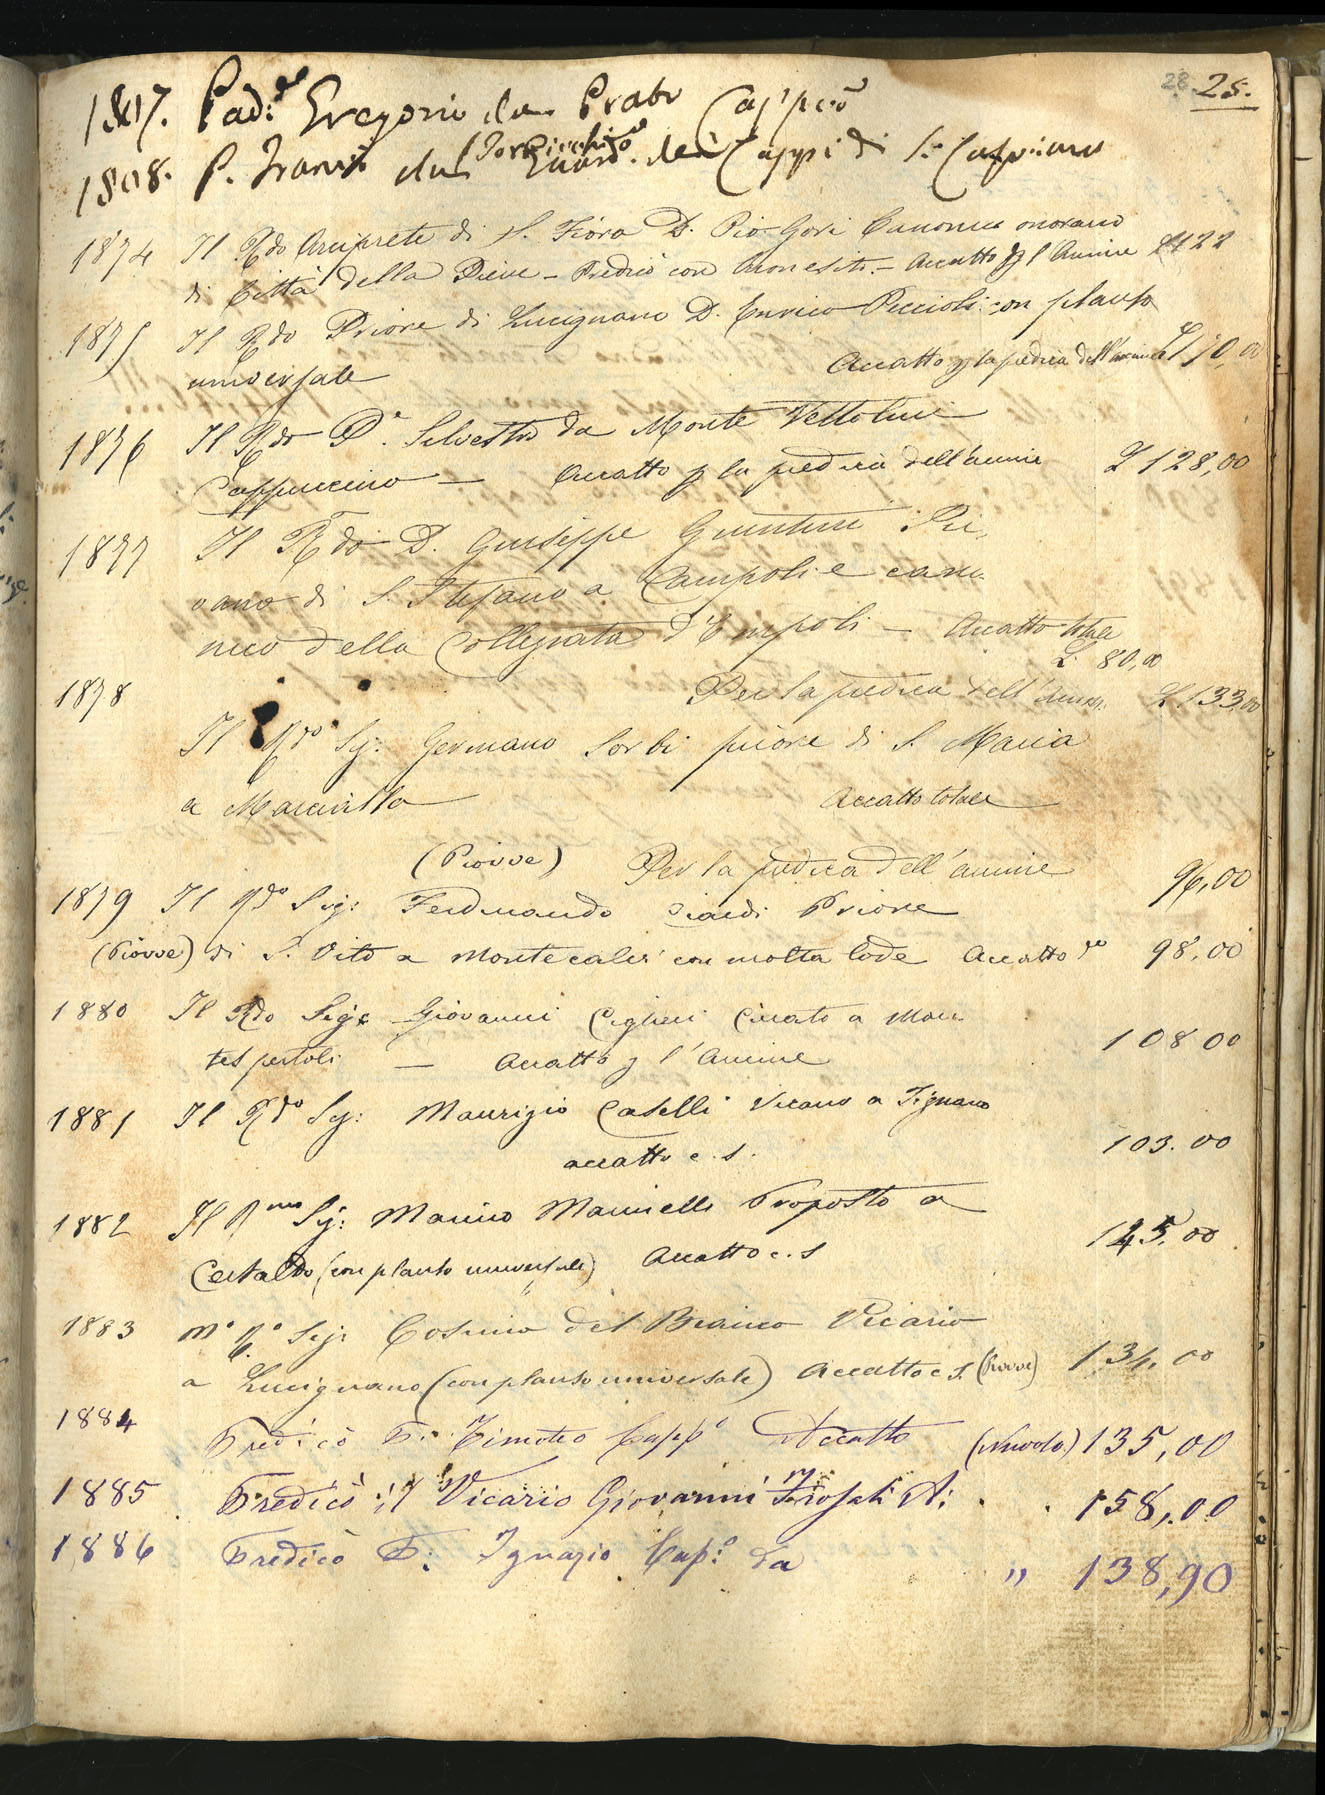 28 25.
1807. Pad:e Gregorio da Prato Capp:o
1808. P. Franc:o da Guard:o dei Capp:i di S: Casciano
1874 Il Rdo Arciprete di S. Fiora D. Pio Gori Canonico onorario
di Città della Pieve – Predicò con Accatto p l'Anime £ 122
1875 Il Rdo Priore di Lucignano D. Enrico Piccioli con plauso
universale Accatto p la predica dell'anime £ 110,00
1876 Il Rdo P. Silvestro da Monte Vettolini
Cappuccino — Accatto p la predica dell'anime £ 128,00
1877 Il Rdo D. Giuseppe Giuntini Pie-
vano di S. Stefano a Campoli e cano-
nico della Collegiata d'Empoli — Accatto totale
£. 80,00
1878 Per la predica dell'Anime £ 133,00
Il Rdo Sig: Germano Sorbi priore di S. Maria
a Marcialla Accatto totale
(Piovve) Per la predica dell'anime 96,00
1879 Il Rdo Sig: Ferdinando Ciardi Priore
(Piovve) di S. Vito a Montecalvi con molta lode Accatto 98,00
1880 Il Rdo Sig: Giovanni Curato a Mon-
tespertoli — Accatto p l'Anime 108 00
1881 Il Rdo Sig: Maurizio Caselli Vicario a Tignano
accatto c. s. 103.00
1882 Il Rmo Sig: Marino Marinelli Proposto a
Certaldo (con plauso universale) Accatto c. s 145,00
1883 Mo Ro Sig: Cosimo del Bianco Vicario
a Lucignano (con plauso universale) Accatto c s. (Piovve) 134,00
1884 Predicò P. Timoteo Capp:o Accatto (Nuvolo) 135,00
1885 Predicò il Vicario Giovanni A: 158,00
1886 Predicò P: Ignazio Cap:o da " 138,90